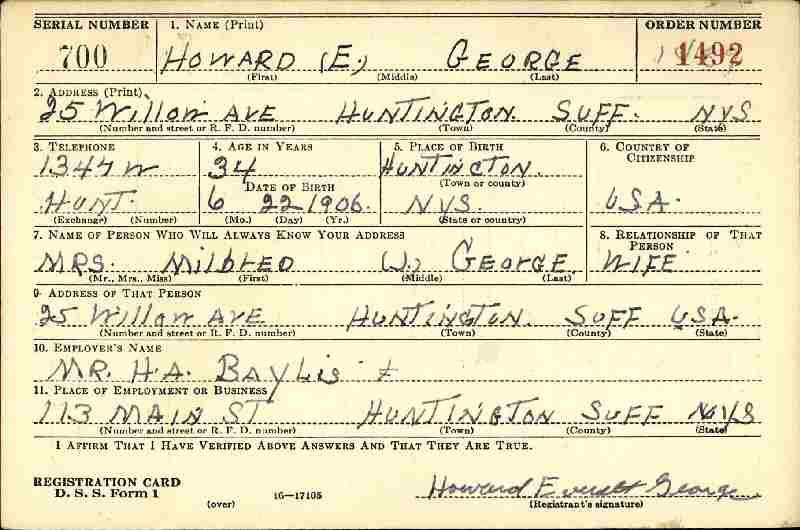 SERIAL NUMBER 1. NAME (Print) ORDER NUMBER
700 HOWARD (E.) GEORGE 1492
(First) (Middle) (Last)
2. ADDRESS (Print)
25 Willow AVE HUNTINGTON. SUFF. NYS
(Number and street or R. F. D. number) (Town) (County) (State)
3. TELEPHONE 4. AGE IN YEARS 5. PLACE OF BIRTH 6. COUNTRY OF CITIZENSHIP
1347W 34 HUNTINGTON.
DATE OF BIRTH (Town or county)
HUNT. 6 22 1906. NYS. USA.
(Exchange) (Number) (Mo.) (Day) (Yr.) (State or country)
7. NAME OF PERSON WHO WILL ALWAYS KNOW YOUR ADDRESS 8. RELATIONSHIP OF THAT PERSON
MRS. MILDRED (J.) GEORGE WIFE
(Mr., Mrs., Miss) (First) (Middle) (Last)
9. ADDRESS OF THAT PERSON
25 Willow AVE HUNTINGTON. SUFF USA.
(Number and street or R. F. D. number) (Town) (County) (State)
10. EMPLOYER'S NAME
MR. H.A. BAYLIS
11. PLACE OF EMPLOYMENT OR BUSINESS
113 MAIN ST HUNTINGTON SUFF NYS
(Number and street or R. F. D. number) (Town) (County) (State)
I AFFIRM THAT I HAVE VERIFIED ABOVE ANSWERS AND THAT THEY ARE TRUE.
REGISTRATION CARD
D. S. S. Form 1 (over) 16—17105 Howard Everett George
(Registrant's signature)